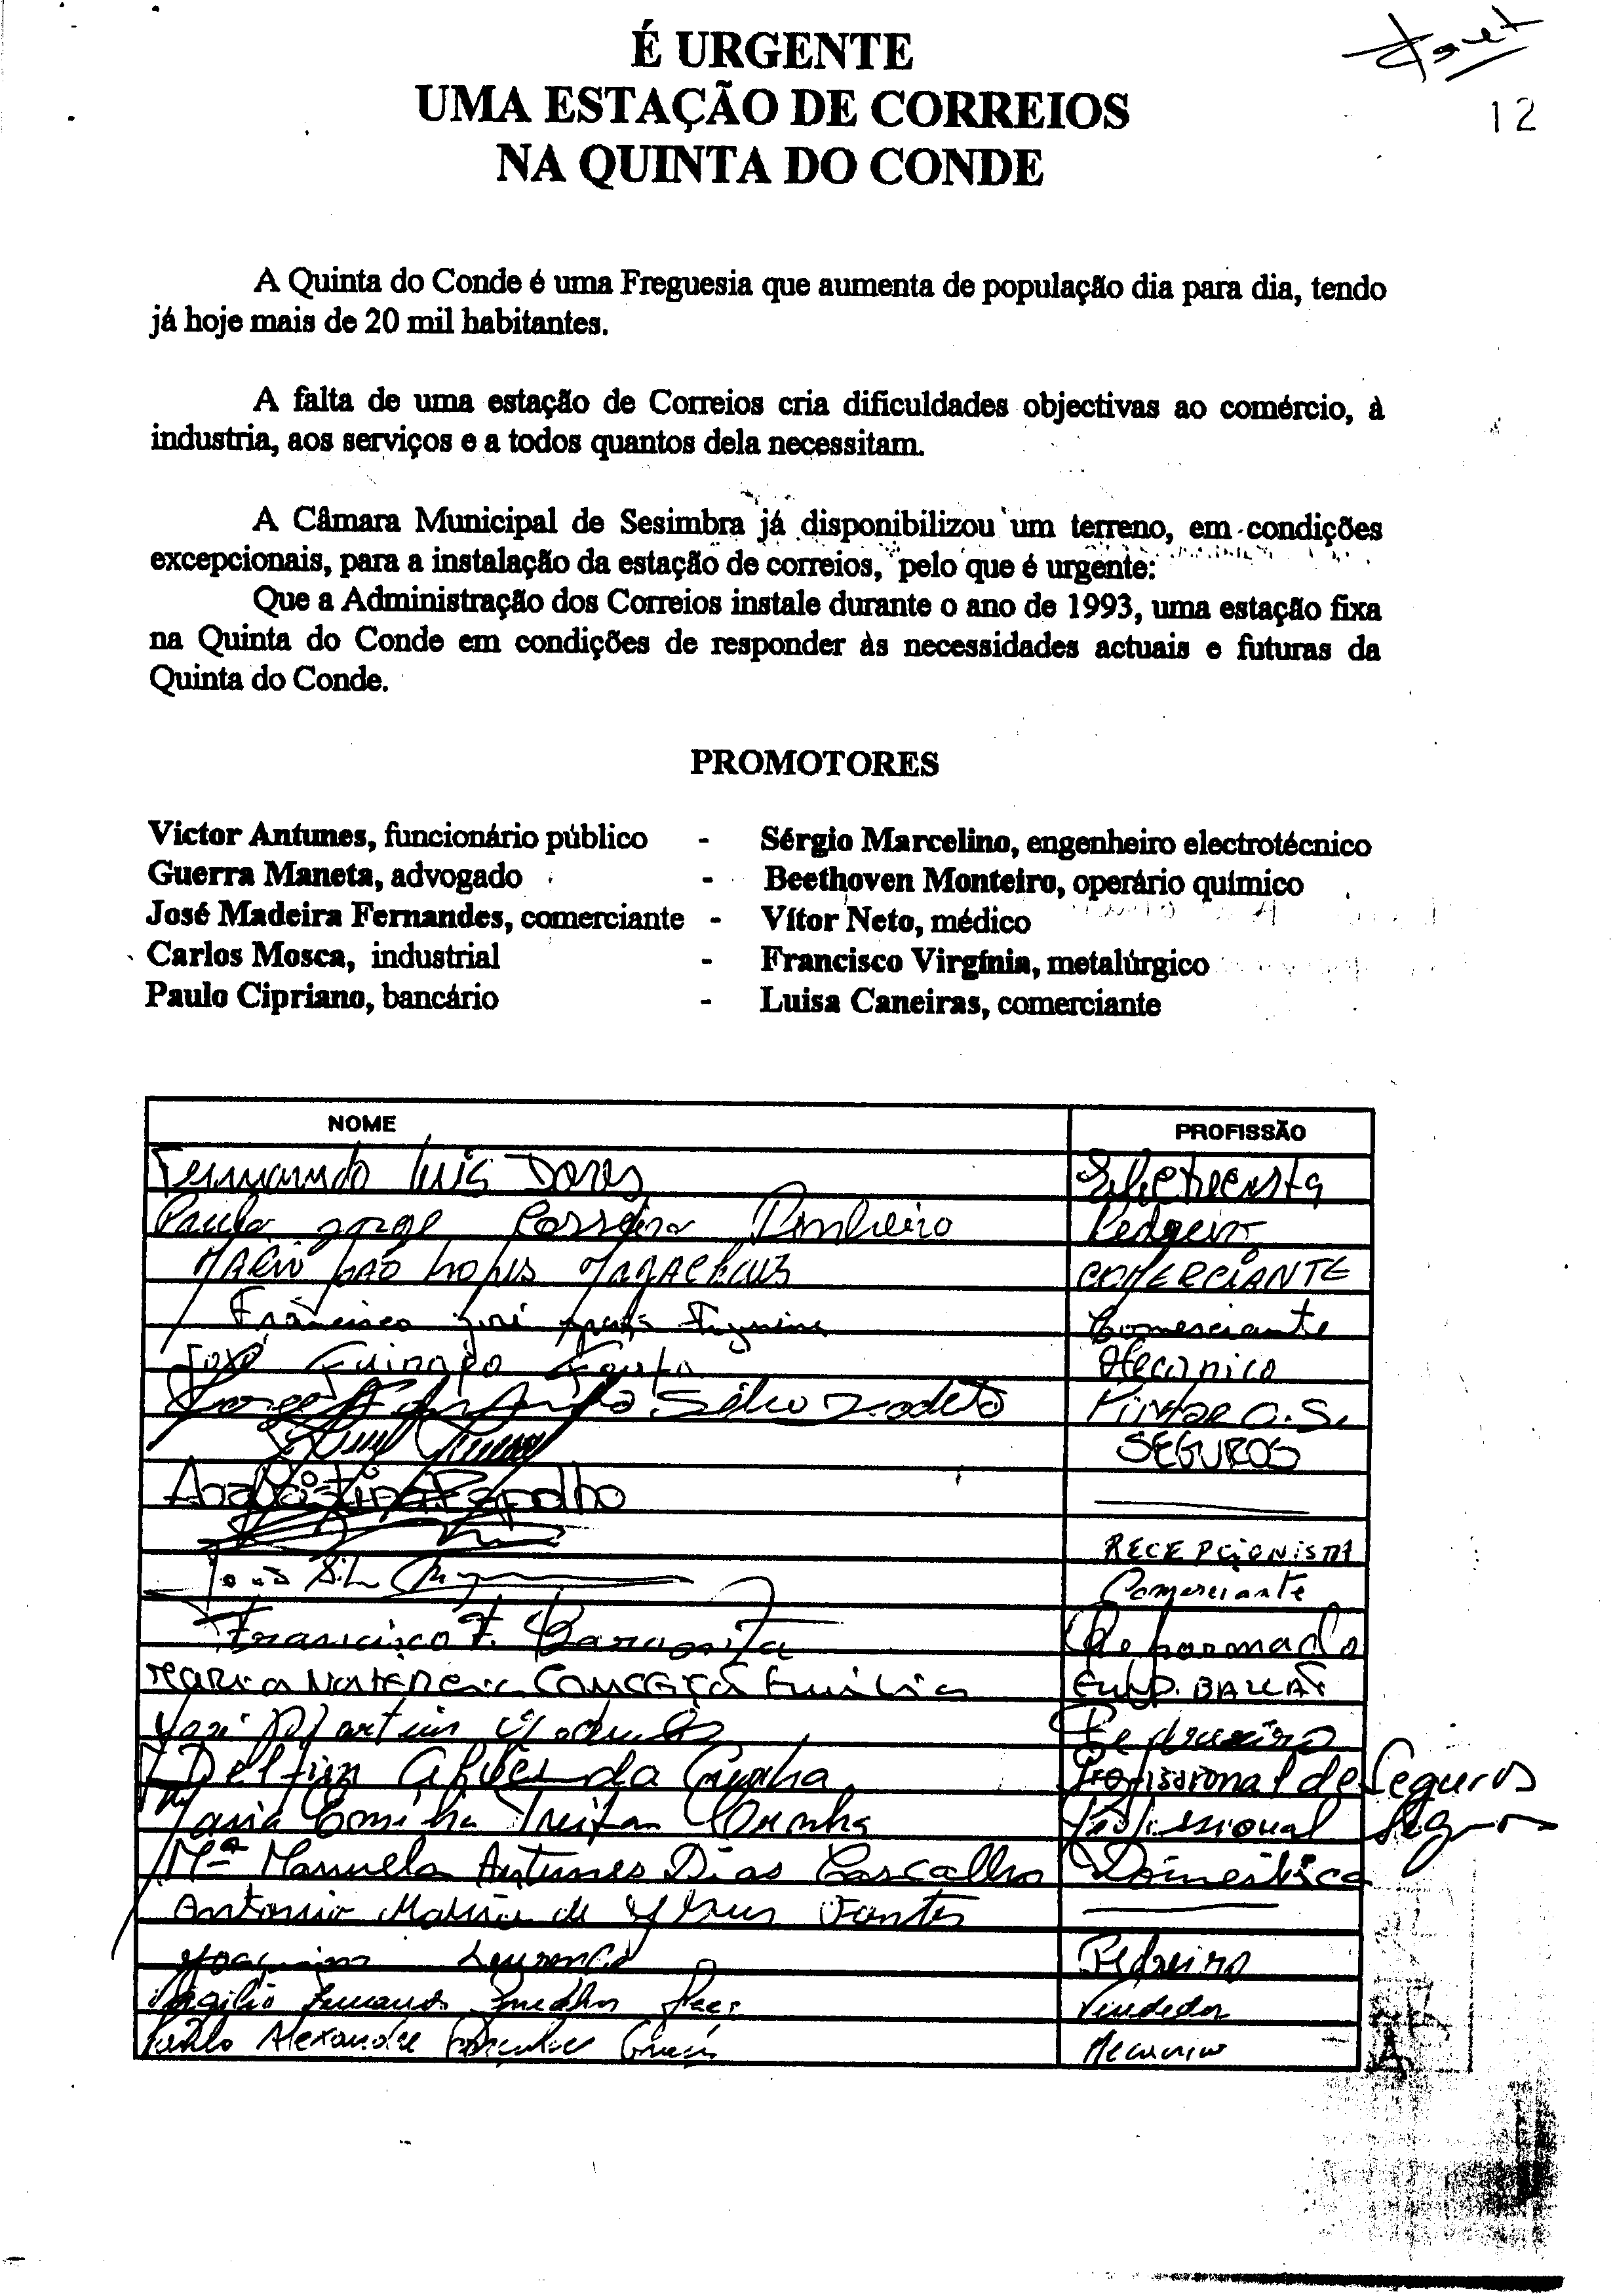 É URGENTE
UMA ESTAÇÃO DE CORREIOS
NA QUINTA DO CONDE
12
A Quinta do Conde é uma Freguesia que aumenta de população dia para dia, tendo
já hoje mais de 20 mil habitantes.
A falta de uma estação de Correios cria dificuldades objectivas ao comércio, à
industria, aos serviços e a todos quantos dela necessitam.
A Câmara Municipal de Sesimbra já disponibilizou um terreno, em condições
excepcionais, para a instalação da estação de correios, pelo que é urgente:
Que a Administração dos Correios instale durante o ano de 1993, uma estação fixa
na Quinta do Conde em condições de responder às necessidades actuais e futuras da
Quinta do Conde.
PROMOTORES
Victor Antunes, funcionário público - Sérgio Marcelino, engenheiro electrotécnico
Guerra Maneta, advogado - Beethoven Monteiro, operário químico
José Madeira Fernandes, comerciante - Vítor Neto, médico
Carlos Mosca, industrial - Francisco Virgínia, metalúrgico
Paulo Cipriano, bancário - Luisa Caneiras, comerciante
NOME PROFISSÃO
Fernando Luis
Paulo Jorge Pinheiro Pedreiro
Lopes COMERCIANTE
Francisco José Comerciante
José Mecanico
Jorge Silva Pintor C.S.
SEGUROS
Ana Cristina
RECEPCIONISTA
João Comerciante
Francisco F. Reformado
Maria Conceição Emp. BALCÃO
José Martins Pedreiro
Delfim Alves da Cunha Profissional de Seguros
Maria Cunha Profissional Seguros
Mª Manuela Antunes Dias Cascalho Doméstica
Antonio de Fontes
Joaquim Lourenço Pedreiro
Virgilio Fernando Vendedor
Paulo Alexandre Mecanico